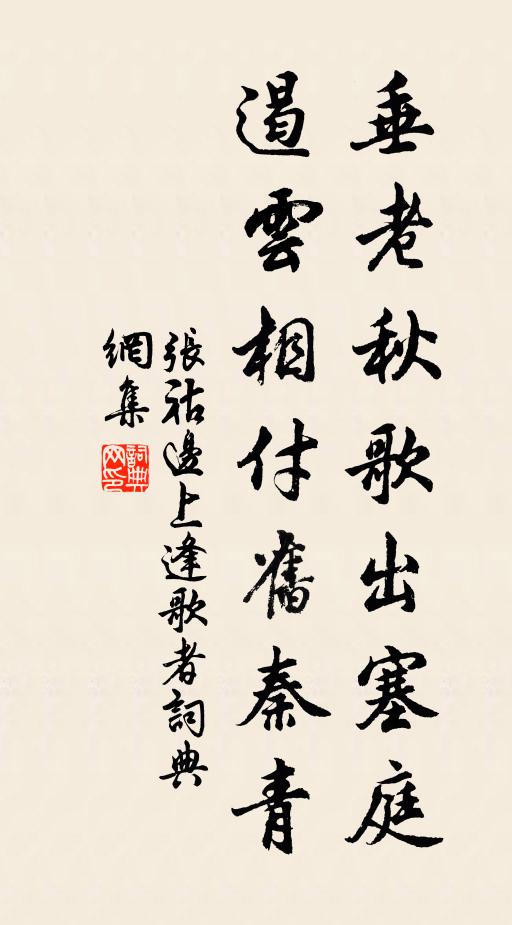 垂老秋歌出塞庭
遏雲相付舊秦青
張祜邊上逢歌者詞典
網集
詞典
网印